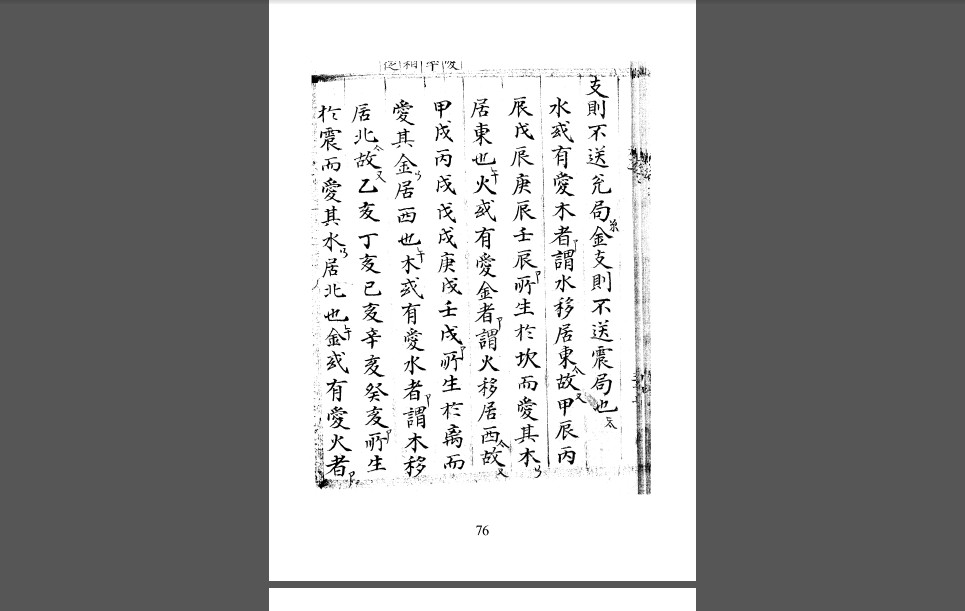 支則不送兌局金支則不送震局也
水或有愛木者謂水移居東故甲辰丙
辰戊辰庚辰壬辰所生於坎而愛其木
居東也火或有愛金者謂火移居西故
甲戌丙戌戊戌庚戌壬戌所生於离而
愛其金居西也木或有愛水者謂木移
居北故乙亥丁亥己亥辛亥癸亥所生
於震而愛其水居北也金或有愛火者
76